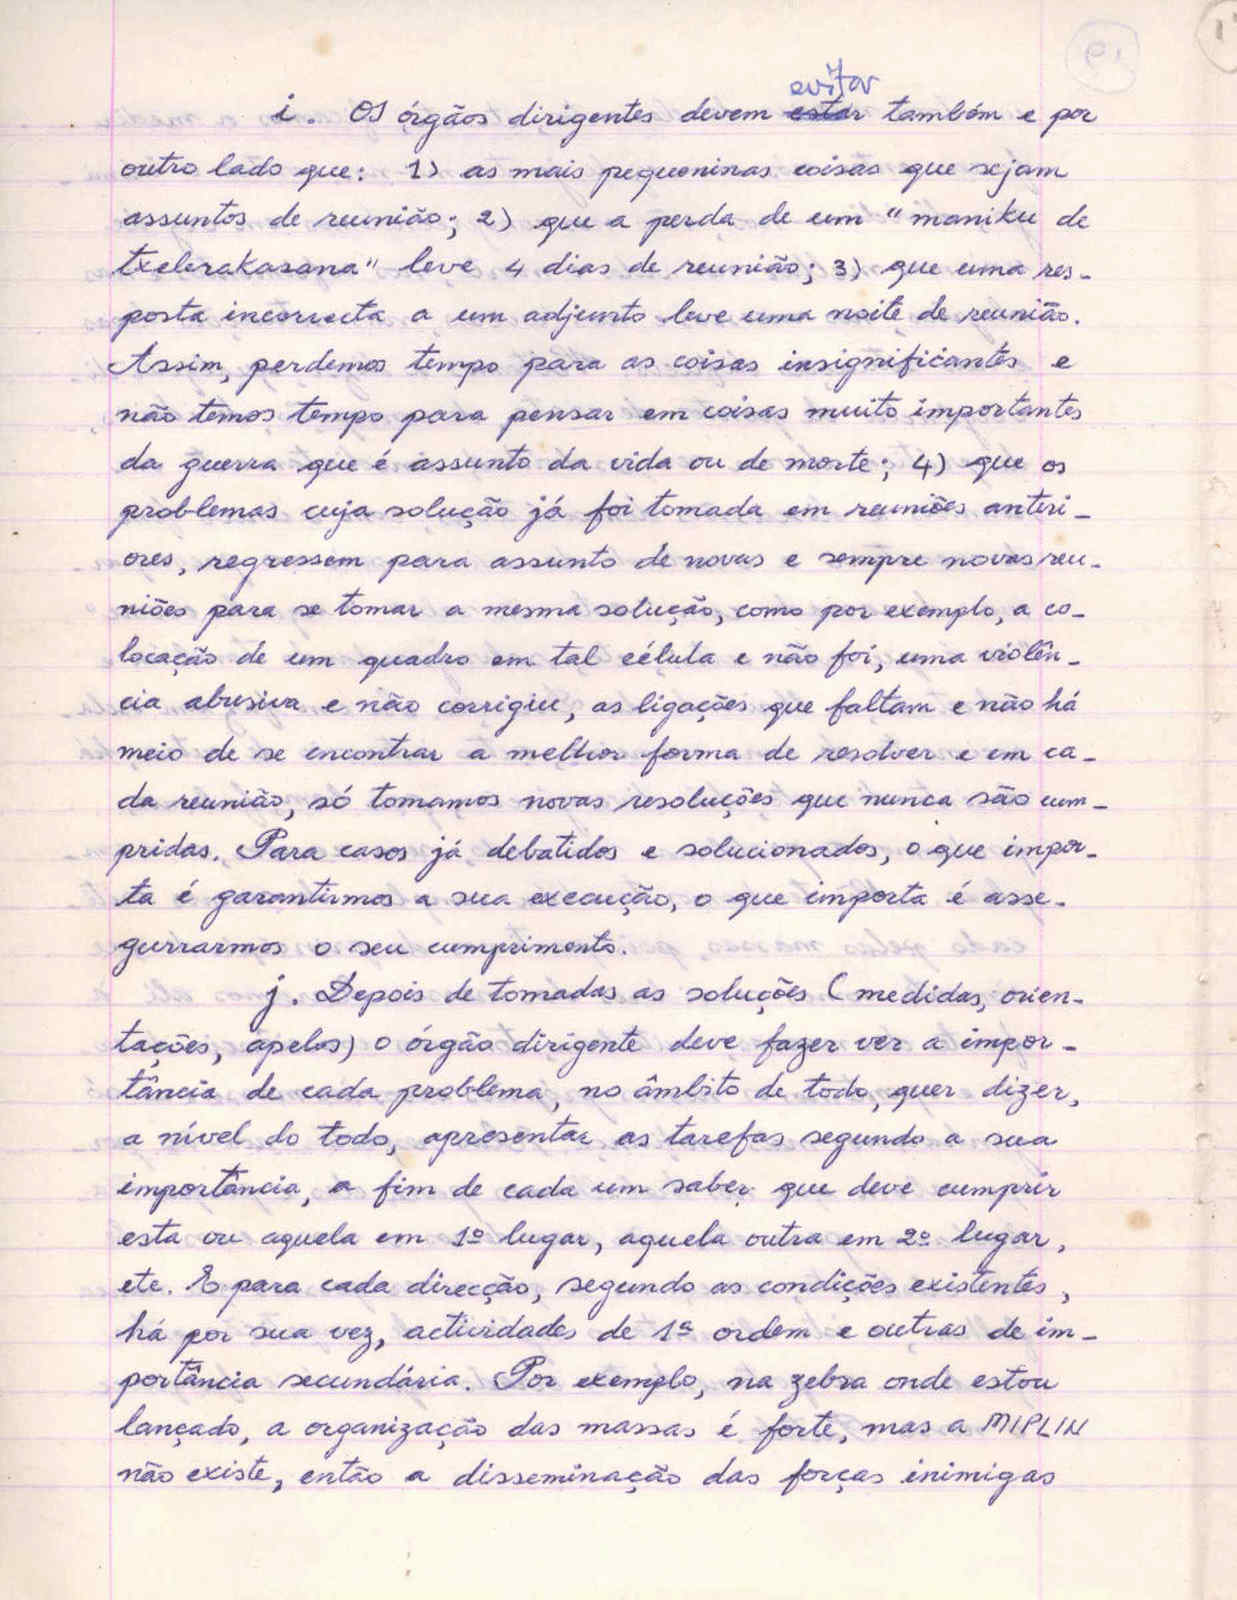 evitar
i. Os órgãos dirigentes devem estar também e por
outro lado que: 1) as mais pequeninas coisas que sejam
assuntos de reunião; 2) que a perda de um "maniku de
txelerakasana" leve 4 dias de reunião; 3) que uma res-
posta incorrecta a um adjunto leve uma noite de reunião.
Assim, perdemos tempo para as coisas insignificantes e
não temos tempo para pensar em coisas muito importantes
da guerra que é assunto da vida ou de morte; 4) que os
problemas cuja solução já foi tomada em reuniões anteri-
ores, regressem para assunto de novas e sempre novas reu-
niões para se tomar a mesma solução, como por exemplo, a co-
locação de um quadro em tal célula e não foi, uma violên-
cia abusiva e não corrigiu, as ligações que faltam e não há
meio de se encontrar a melhor forma de resolver e em ca-
da reunião, só tomamos novas resoluções que nunca são cum-
pridas. Para casos já debatidos e solucionados, o que impor-
ta é garantirmos a sua execução, o que importa é asse-
gurrarmos o seu cumprimento.
j. Depois de tomadas as soluções (medidas, orien-
tações, apelos) o órgão dirigente deve fazer ver a impor-
tância de cada problema, no âmbito de todo, quer dizer,
a nível do todo, apresentar as tarefas segundo a sua
importância, a fim de cada um saber que deve cumprir
esta ou aquela em 1º lugar, aquela outra em 2º lugar,
etc. E para cada direcção, segundo as condições existentes,
há por sua vez, actividades de 1ª ordem e outras de im-
portância secundária. Por exemplo, na zebra onde estou
lançado, a organização das massas é forte, mas a MIPLIN
não existe, então a disseminação das forças inimigas